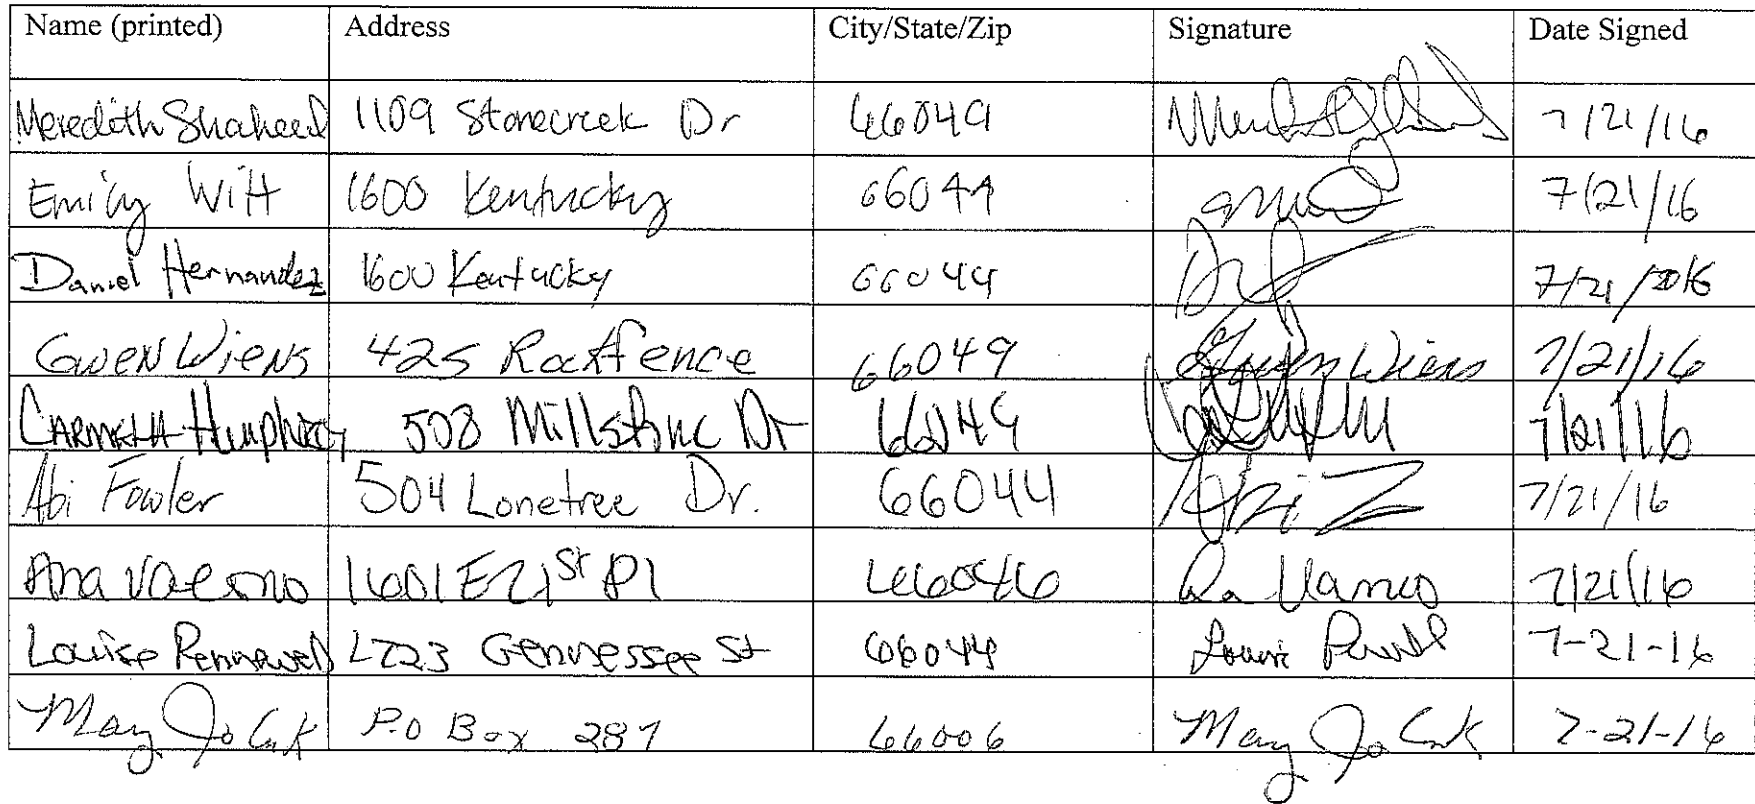 Name (printed) Address City/State/Zip Signature Date Signed
Meredith Shaheed 1109 Stonecreek Dr 66049 7/21/16
Emily Witt 1600 Kentucky 66044 7/21/16
Daniel Hernandez 1600 Kentucky 66044 7/21/2016
Gwen Wiens 425 Rockfence 66049 Gwen Wiens 7/21/16
Humphrey 508 Millstone Dr 66049 7/21/16
Abi Fowler 504 Lonetree Dr. 66044 Abi 7/21/16
Ana 1601 E 21st Pl 66046 7/21/16
Louise Pennewell Gennessee St 66044 Louise 7-21-16
Mary Jo P.O Box 287 66006 Mary Jo 7-21-16